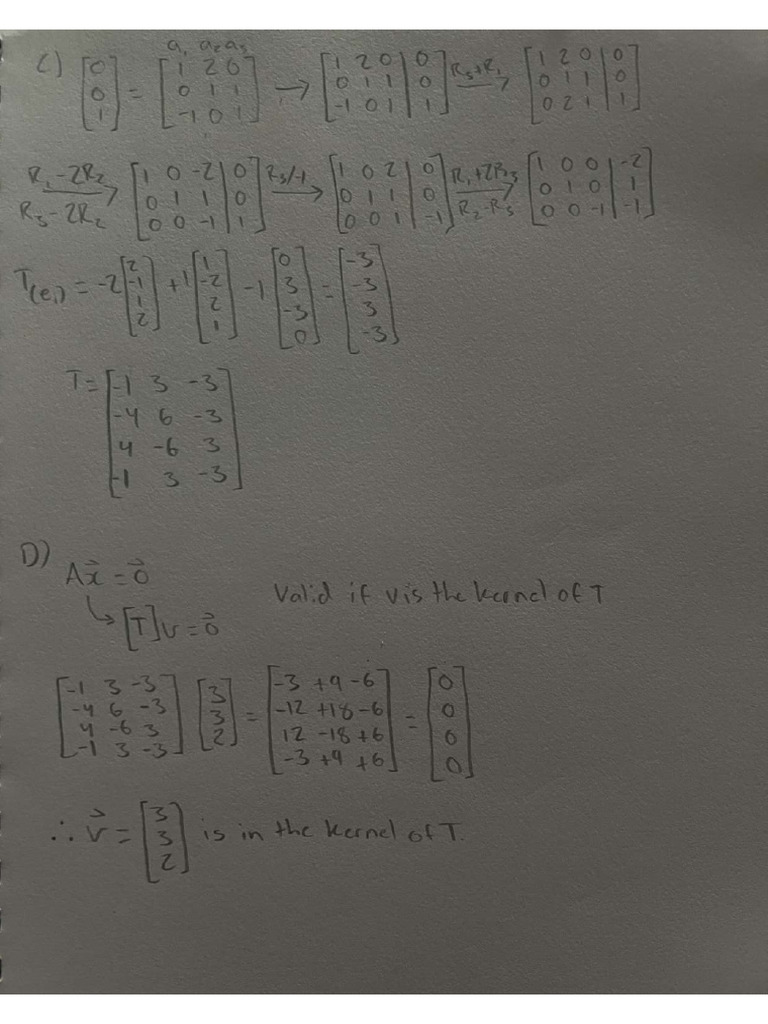 a₁ a₂ a₃
C) [0; 0; 1] = [1 2 0; 0 1 1; -1 0 1] → [1 2 0 | 0; 0 1 1 | 0; -1 0 1 | 1] R₃+R₁ → [1 2 0 | 0; 0 1 1 | 0; 0 2 1 | 1]
R₁-2R₂ R₃-2R₂ → [1 0 -2 | 0; 0 1 1 | 0; 0 0 -1 | 1] R₃/-1 → [1 0 2 | 0; 0 1 1 | 0; 0 0 1 | -1] R₁+2R₃ R₂-R₃ → [1 0 0 | -2; 0 1 0 | 1; 0 0 -1 | -1]
T(e₁) = -2[2; -1; 1; 2] + 1[1; -2; 2; 1] - 1[0; 3; -3; 0] = [-3; -3; 3; -3]
T = [-1 3 -3; -4 6 -3; 4 -6 3; -1 3 -3]
D) Ax⃗ = 0⃗
Valid if v is the kernel of T
↳ [T]v = 0⃗
[-1 3 -3; -4 6 -3; 4 -6 3; -1 3 -3] [3; 3; 2] = [-3 +9 -6; -12 +18 -6; 12 -18 +6; -3 +9 +6] = [0; 0; 0; 0]
∴ v⃗ = [3; 3; 2] is in the kernel of T.